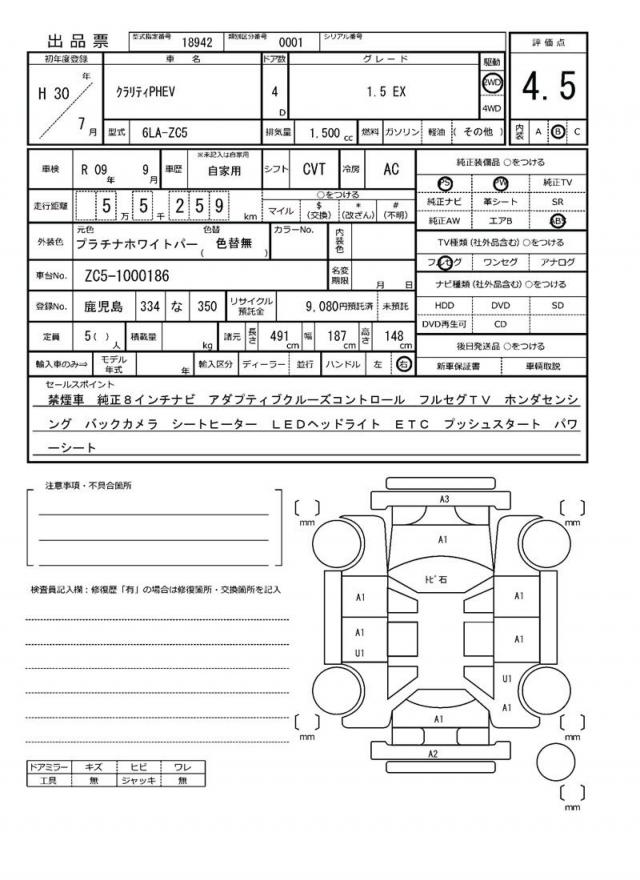 出品票 型式指定番号 18942 類別区分番号 0001 シリアル番号
初年度登録 車名 ドア数 グレード 駆動 評価点
H 30 年 7 月 クラリティPHEV 4 D 1.5 EX 2WD 4WD 4.5
型式 6LA-ZC5 排気量 1.500 cc 燃料 ガソリン 軽油 ( その他 ) 内装 A B C
車検 R 09 年 9 月 車歴 ※未記入は自家用 自家用 シフト CVT 冷房 AC
純正装備品 ○をつける
PS PW 純正TV
純正ナビ 革シート SR
純正AW エアB ABS
走行距離 5 万 5 千 2 5 9 km
○をつける
マイル $ (交換) * (改ざん) # (不明)
外装色 元色 プラチナホワイトパー 色替 ( 色替無 ) カラーNo. 内装色
TV種類 (社外品含む) ○をつける
フルセグ ワンセグ アナログ
車台No. ZC5-1000186 名変期限 月 日
ナビ種類 (社外品含む) ○をつける
HDD DVD SD
DVD再生可 CD
登録No. 鹿児島 334 な 350 リサイクル預託金 9,080円預託済 未預託
定員 5 ( ) 人 積載量 kg 諸元 長さ 491 cm 幅 187 cm 高さ 148 cm
後日発送品 ○をつける
新車保証書 車輌取説
輸入車のみ⇒ モデル年式 年 輸入区分 ディーラー 並行 ハンドル 左 右
セールスポイント
禁煙車 純正8インチナビ アダプティブクルーズコントロール フルセグTV ホンダセンシ
ング バックカメラ シートヒーター LEDヘッドライト ETC プッシュスタート パワ
ーシート
注意事項・不具合箇所
検査員記入欄：修復歴「有」の場合は修復箇所・交換箇所を記入
ドアミラー キズ ヒビ ワレ
工具 無 ジャッキ 無
A3
mm mm
A1
トビ石
A1 A1
A1 A1
U1
U1
A1
A1
mm mm
A2
mm